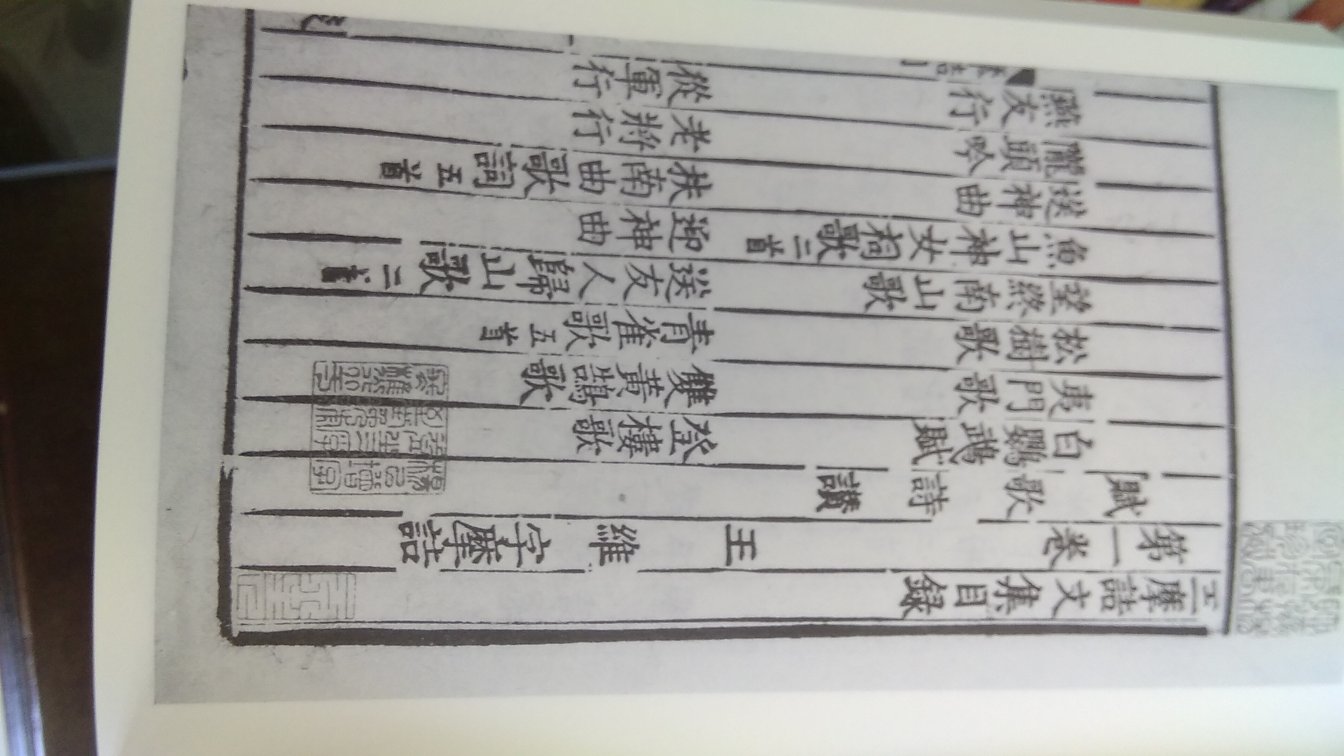 王摩詰文集目録
第一卷 王維字摩詰
賦 歌 詩 讚
白鸚鵡賦 登樓歌
夷門歌 雙黃鵠歌
松樹歌 青雀歌五首
登終南山歌 送友人歸山歌二首
魚山神女祠歌二首 迎神曲
送神曲 扶南曲歌詞五首
隴頭吟 老將行
燕支行 從軍行